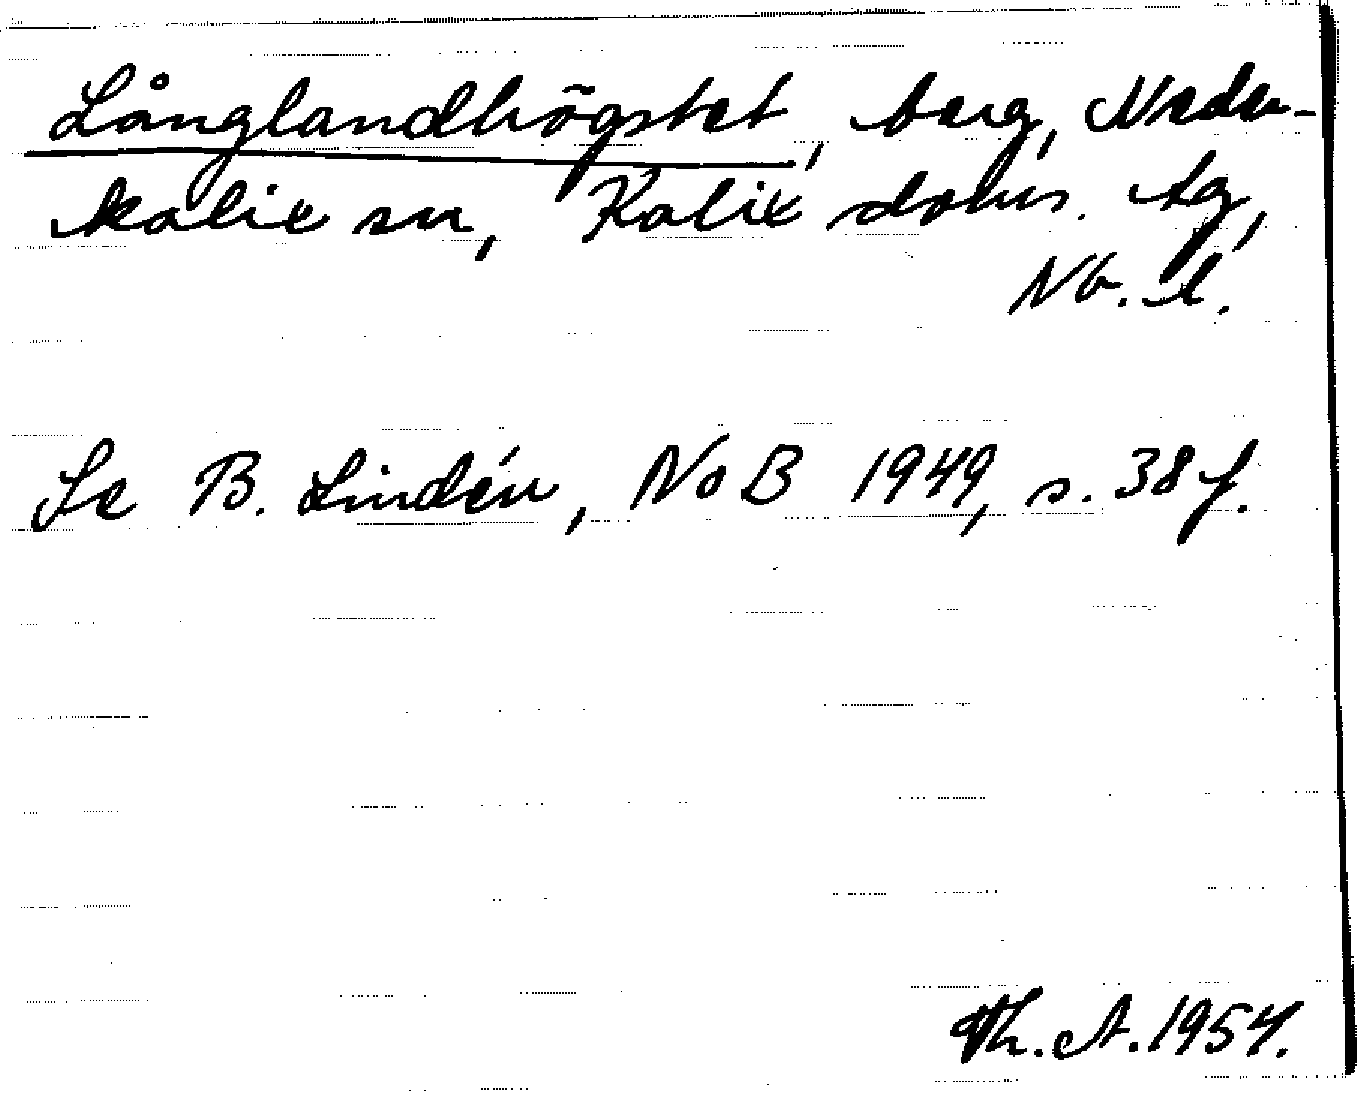 Långlandhögstet, berg, Neder-
kalix sn, Kalix dolms. tg,
Nb. l.
Se B. Lindén, NoB 1949, s. 38 f.
Th. A. 1954.